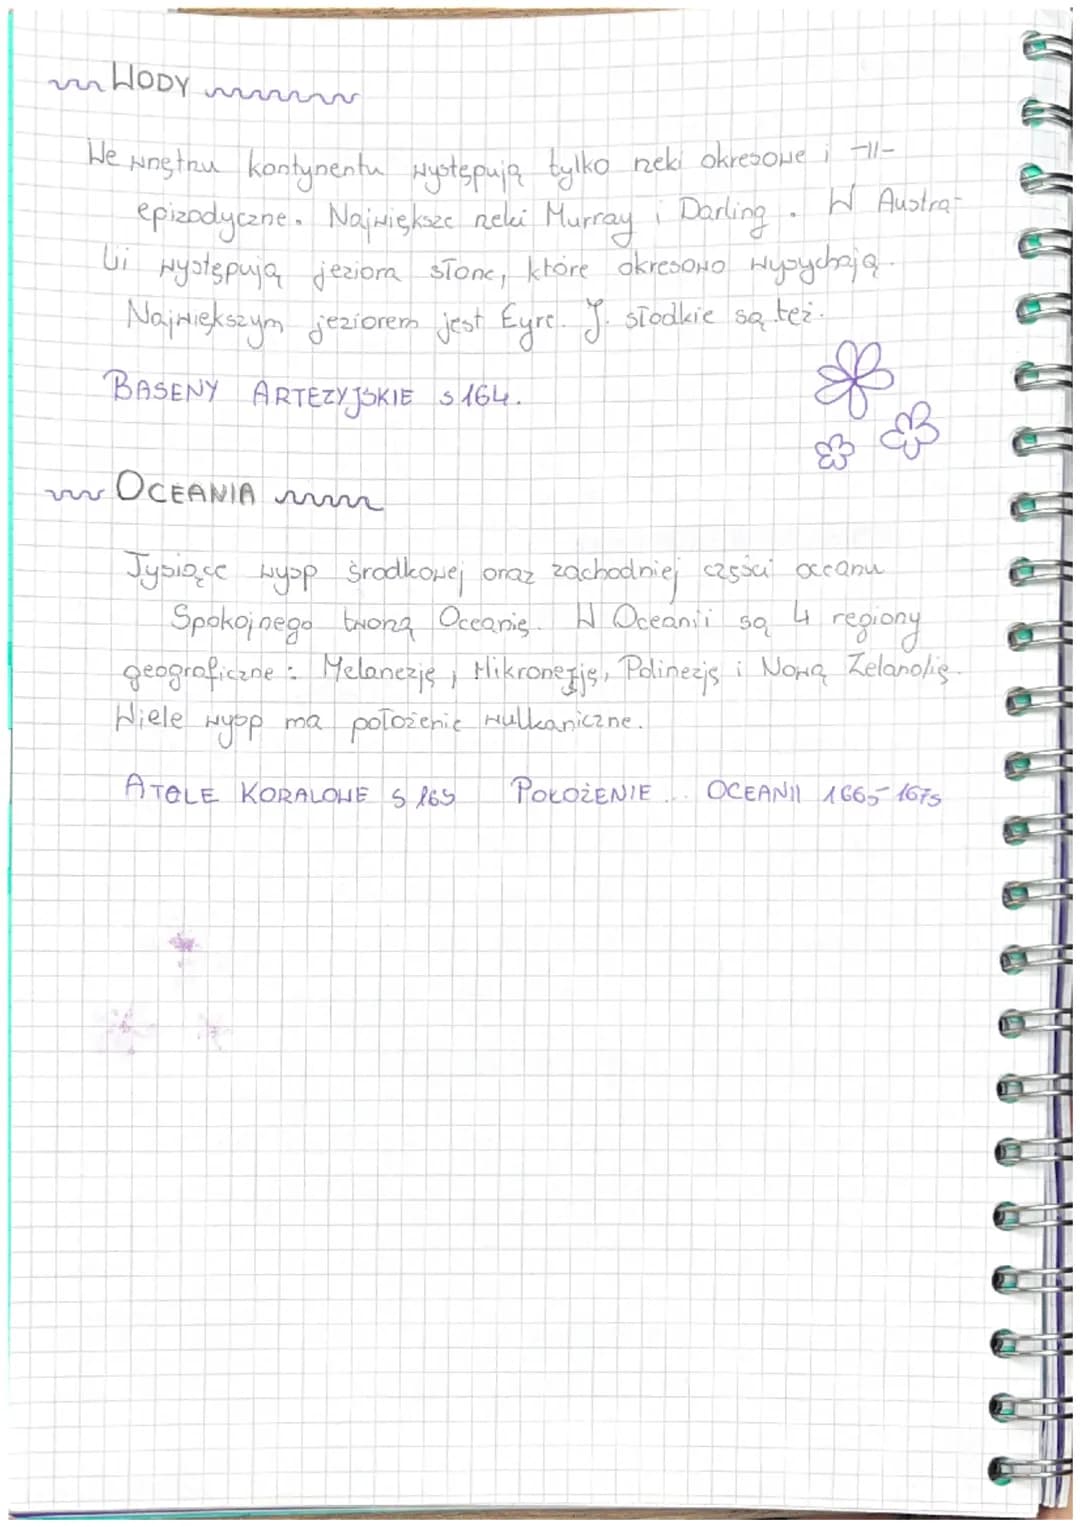 WODY
We wnętrzu kontynentu występują tylko rzeki okresowe i -11-
epizodyczne. Największe rzeki Murray i Darling. W Austra-
lii występują jeziora słone, które okresowo wysychają.
Największym jeziorem jest Eyre. J. słodkie są też.
BASENY ARTEZYJSKIE s 164.
OCEANIA
Tysiące wysp środkowej oraz zachodniej części oceanu
Spokojnego tworzą Oceanię. W Oceanii są 4 regiony
geograficzne: Melanezję, Mikronezję, Polinezję i Nową Zelandię.
Wiele wysp ma położenie wulkaniczne.
ATOLE KORALOWE s 165 POŁOŻENIE... OCEANII 166s-167s